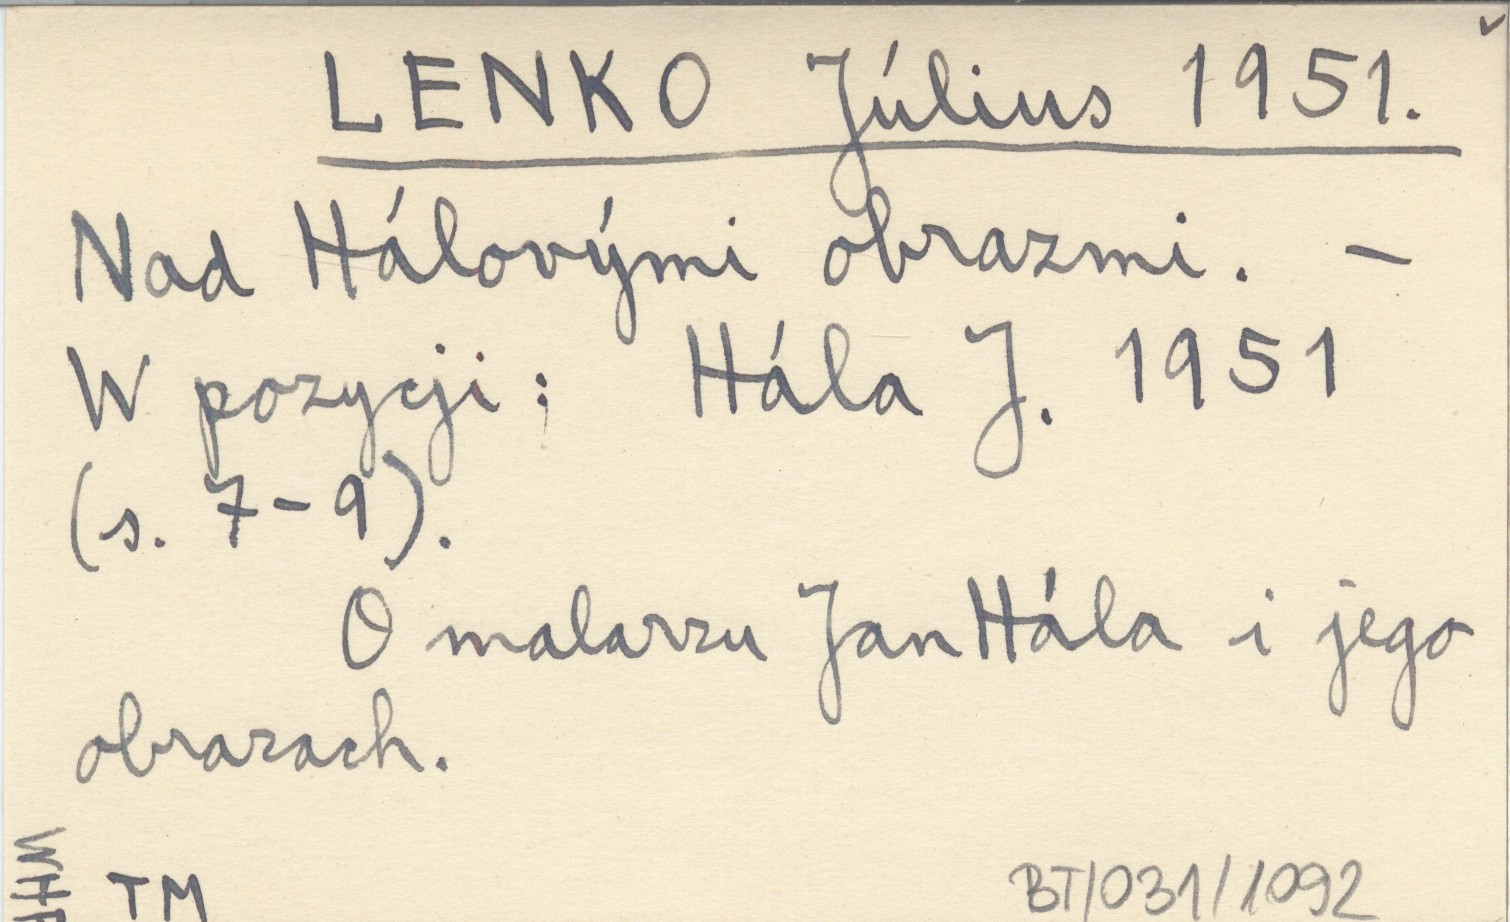 LENKO Július 1951.
Nad Hálovými obrazmi. –
W pozycji: Hála J. 1951
(s. 7-9).
O malarzu Jan Hála i jego
obrazach.
TM
BT/031/1092